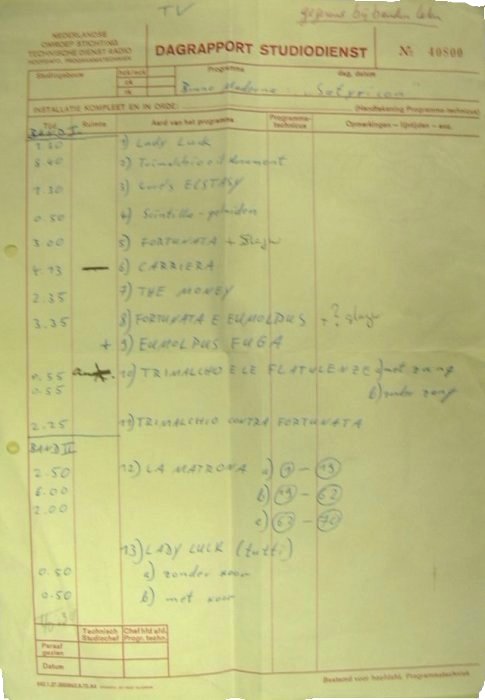 TV
NEDERLANDSE
OMROEP STICHTING
TECHNISCHE DIENST RADIO
DAGRAPPORT STUDIODIENST
No 40800
Studiogebouw
hck/eck
ck
ck
Programma
dag, datum
Bruno Maderna "Satyricon"
INSTALLATIE KOMPLEET EN IN ORDE:
(Handtekening Programma-technicus)
Tijd
Ruimte
Aard van het programma
Programma-technicus
Opmerkingen - lijntijden - enz.
BAND I
1) Lady Luck
8.40 2)
1.30 3) ECSTASY
0.50 4) Scintille - geluiden
3.00 5) FORTUNATA +
4.13 — 6) CARRIERA
2.35 7) THE MONEY
3.35 8) FORTUNATA E EUMOLPUS + ?
+ 9) EUMOLPUS FUGA
0.55 10) TRIMALCHO E LE FLATULENZE a) met zang
0.55 b) zonder zang
2.25 11) TRIMALCHIO CONTRA FORTUNATA
BAND II
2.50 12) LA MATRONA a) 1 - 19
6.00 b) 19 - 62
2.00 c) 63 - 70
13) LADY LUCK (tutti)
0.50 a) zonder koor
0.50 b) met koor
Technisch Studiochef
Chef hfd afd. Progr. techn.
Paraaf gezien
Datum
Bestemd voor hoofdafd. Programmatechniek